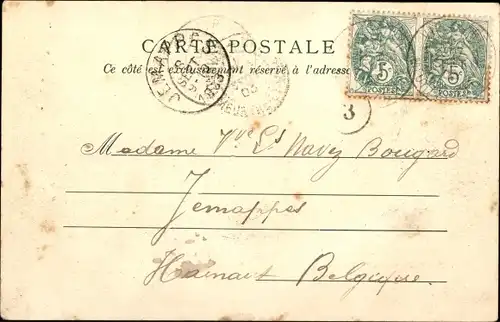 CARTE POSTALE
Ce côté est exclusivement réservé à l'adresse
JEMAPPES
5 5
POSTES POSTES
3
Madame Vve Ls Navez Bougard
Jemappes
Hainaut Belgique.